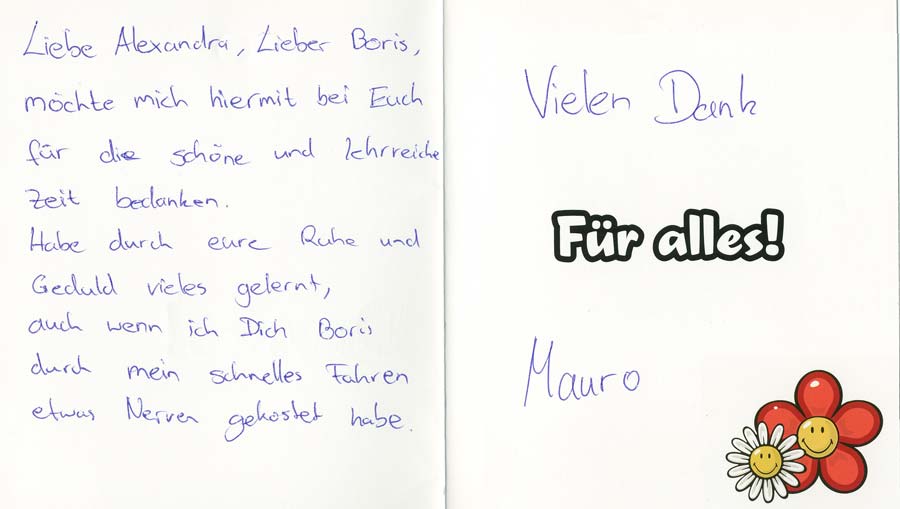 Liebe Alexandra, Lieber Boris,
möchte mich hiermit bei Euch
für die schöne und lehrreiche
Zeit bedanken.
Habe durch eure Ruhe und
Geduld vieles gelernt,
auch wenn ich Dich Boris
durch mein schnelles Fahren
etwas Nerven gekostet habe.
Vielen Dank
Für alles!
Mauro